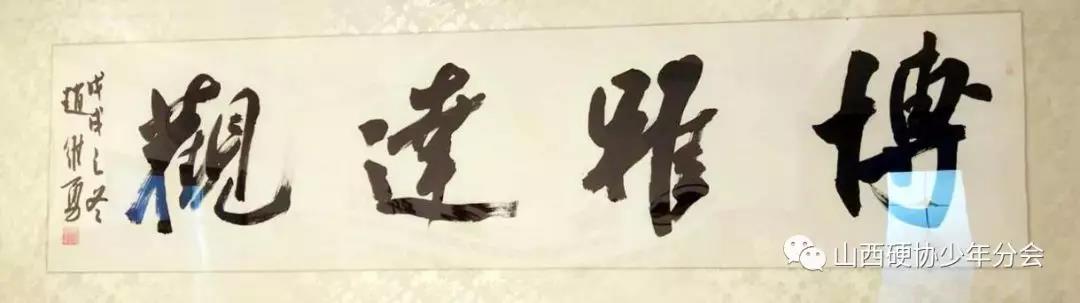 博雅達觀
戊戌之冬
趙維勇
山西硬协少年分会